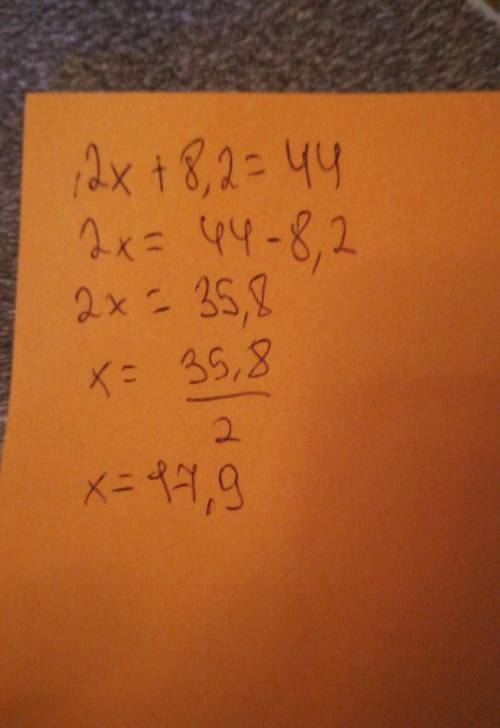 2x + 8,2 = 44
2x = 44 - 8,2
2x = 35,8
x = 35,8
2
x = 17,9